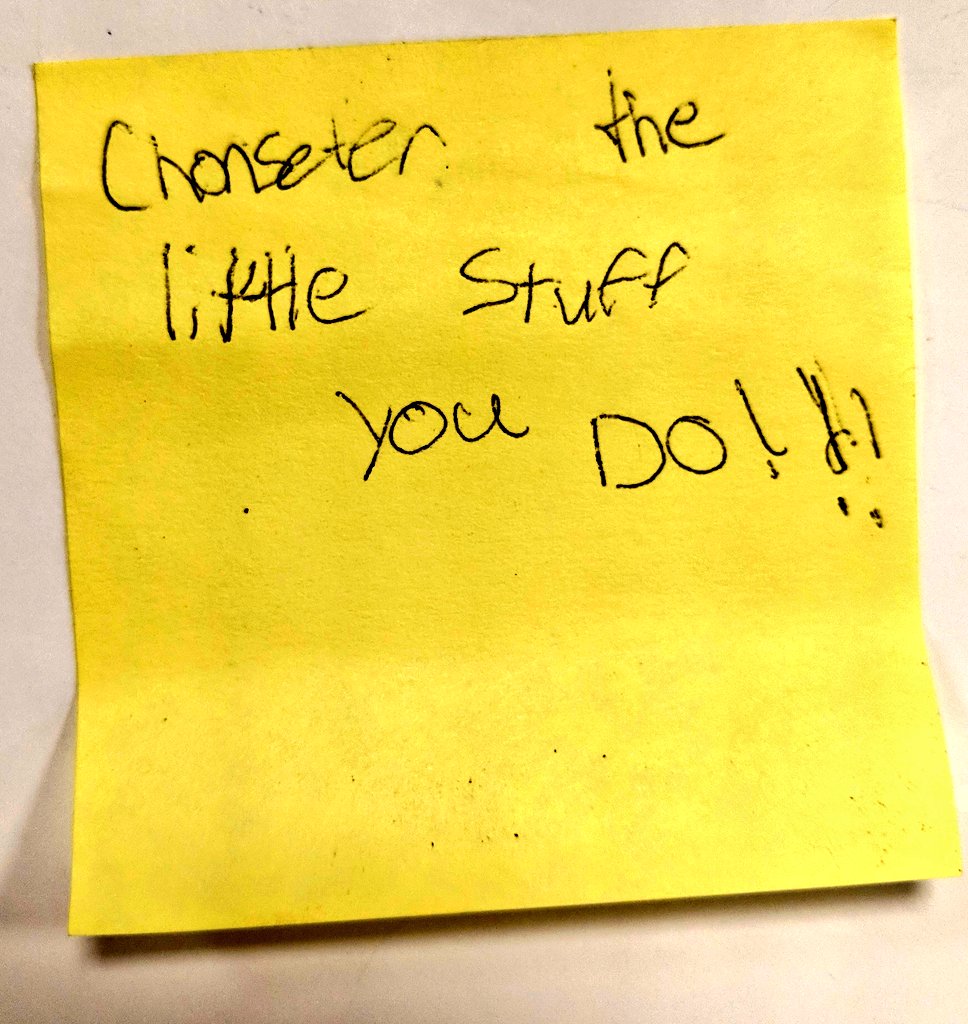 Chonseter the
little stuff
you DO!!!